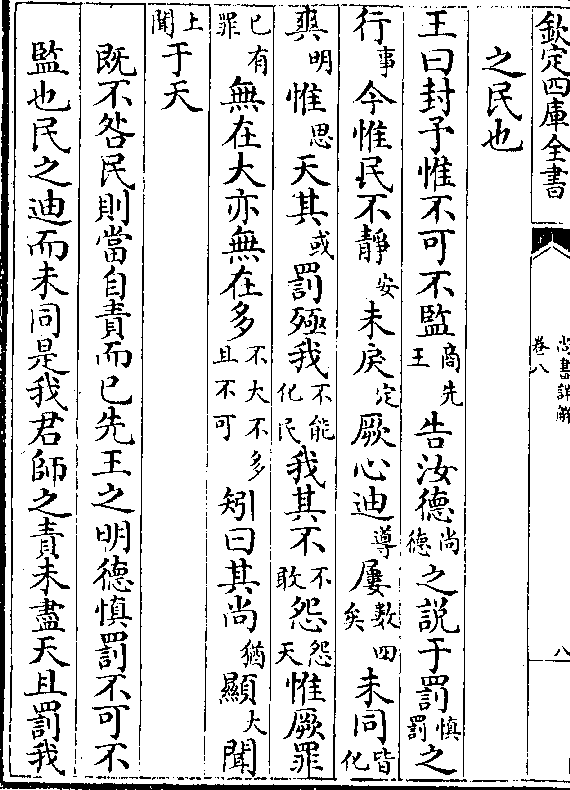 欽定四庫全書
尚書詳解
卷八
八
之民也
王曰封予惟不可不監商先王告汝德尚德之説于罰慎罰之
行事今惟民不靜安未戾定厥心迪導屢數四矣未同皆化
爽明惟思天其或罰殛我不能化民我其不不敢怨怨天惟厥罪
已有罪無在大亦無在多不大不多且不可矧曰其尚猶顯大聞
上聞于天
既不咎民則當自責而已先王之明德慎罰不可不
監也民之迪而未同是我君師之責未盡天且罰我